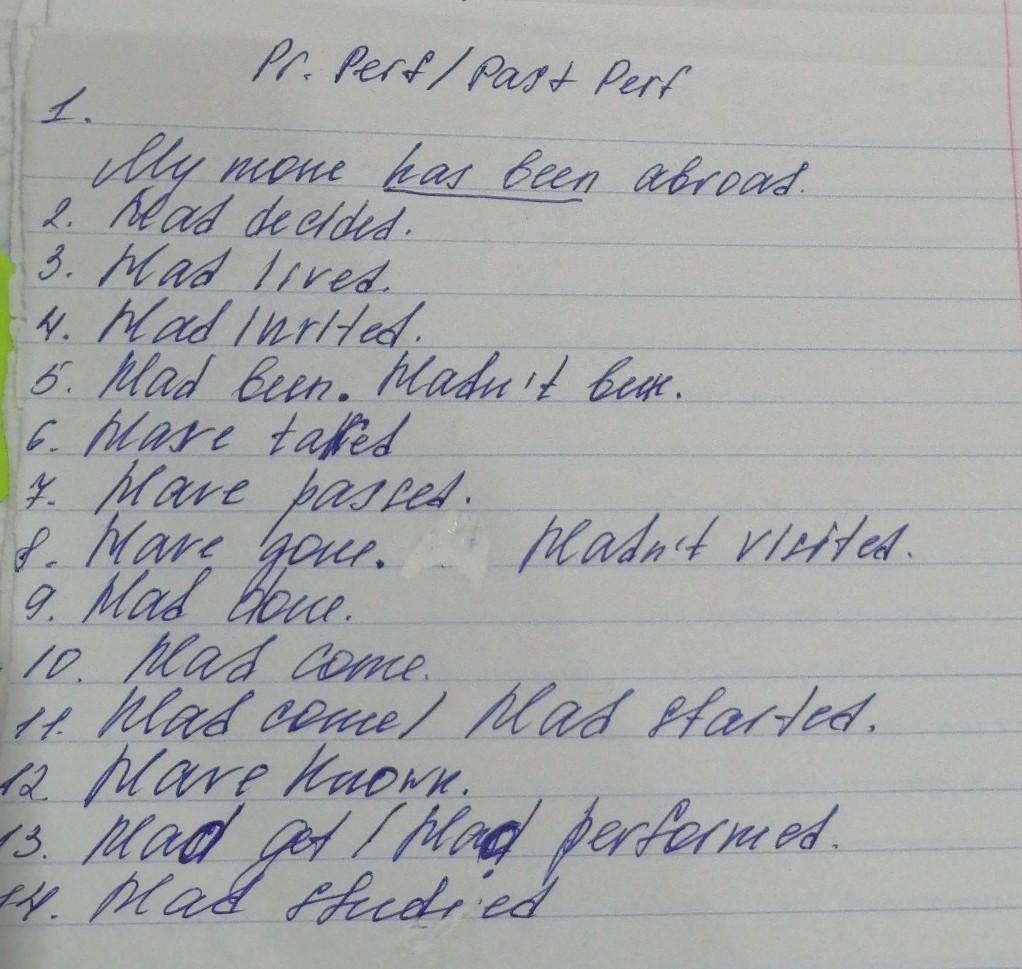 Pr. Perf / Past Perf
1.
My mom has been abroad.
2. Had decided.
3. Had lived.
4. Had invited.
5. Had been. Hadn't been.
6. Have talked
7. Have passed.
8. Have gone. Hadn't visited.
9. Had done.
10. Had come.
11. Had come / Had started.
12 Have known.
13. Had got / Had performed.
14. Had studied